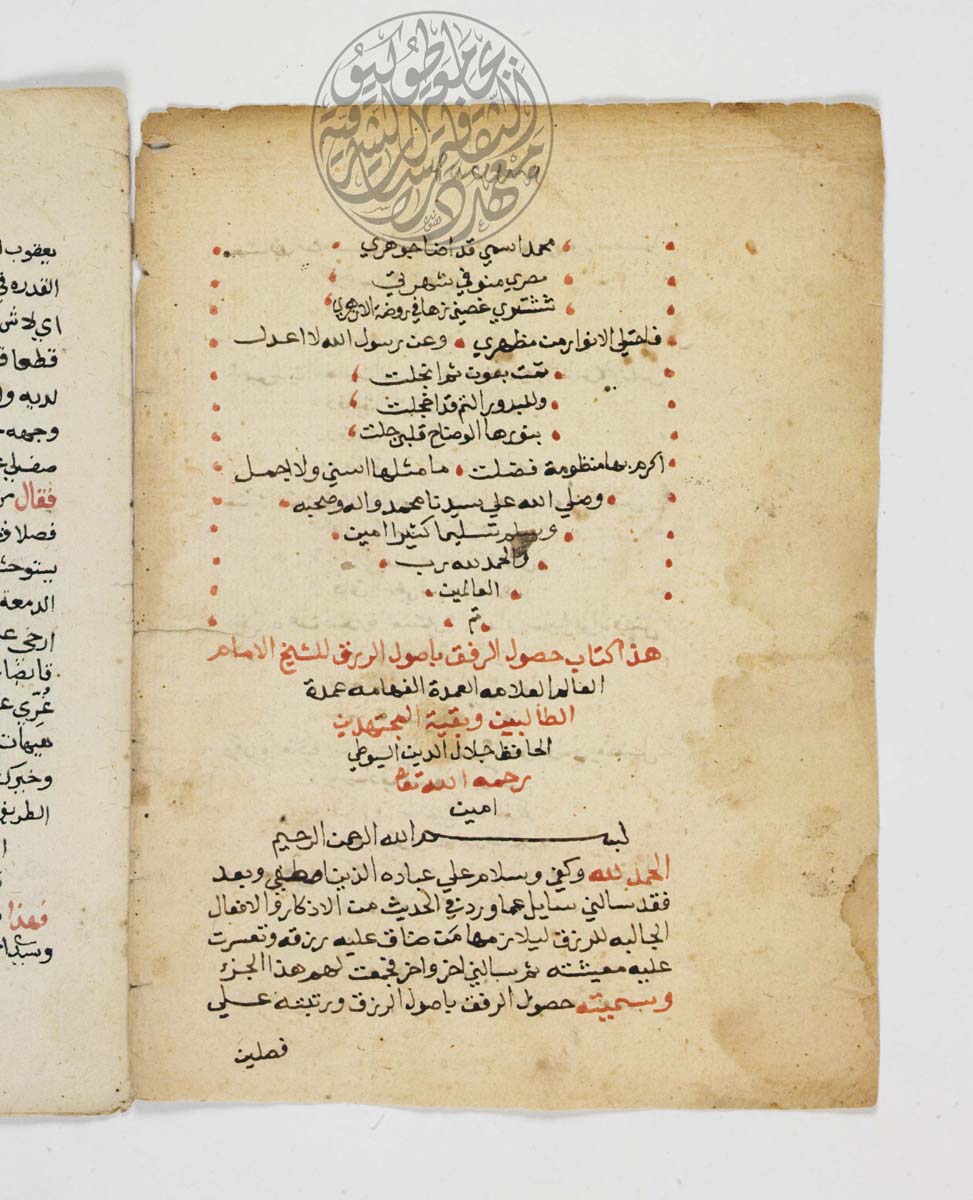 محمد اسمي قد اضا جوهري
مصري منوفي شهرتي
ششتري غصني زها في روضة الازهري
فاجتلي الانوار من مظهري وعن رسول الله لا اعدل
تمت بعون ثم انجلت
وللبدور التم قد اخجلت
بنورها الوضاح قلبي جلت
اكرم بها منظومة فضلت ما مثلها اسني ولا اجمل
وصلي الله علي سيدنا محمد واله وصحبه
وسلم تسليما كثيرا امين
والحمد لله رب
العالمين
تم
هذا كتاب حصول الرفق باصول الرزق للشيخ الامام
العالم العلامه العمدة الفهامه عمدة
الطالبين وبقية المجتهدين
الحافظ جلال الدين السيوطي
رحمه الله تعالي
امين
بسم الله الرحمن الرحيم
الحمد لله وكفي وسلام علي عباده الذين اصطفي وبعد
فقد سالني سايل عما ورد في الحديث من الاذكار والافعال
الجالبه للرزق ليلازمها من ضاق عليه رزقه وتعسرت
عليه معيشته ثم سالني اخر واخر فجمعت لهم هذا الجزء
وسميته حصول الرفق باصول الرزق ورتبته علي
فصلين
يعقوب
القدره في
اي لاش
قطعا
لديه
وجهه
فقال
فصلا
الدمعة
ارخي
هيهات
فهذا